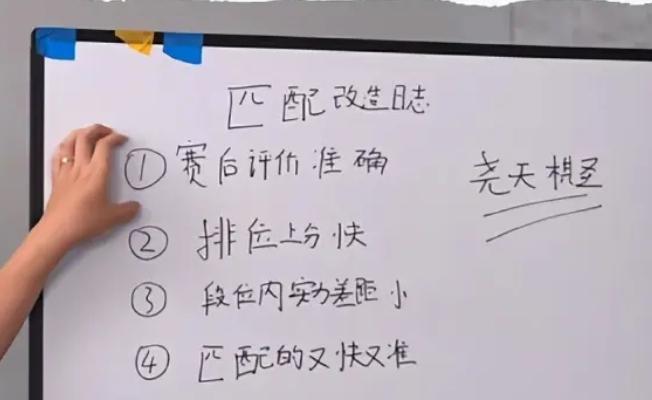 匹配改造日志
① 赛后评价准确
尧天棋圣
② 排位上分快
③ 段位内实力差距小
④ 匹配的又快又准